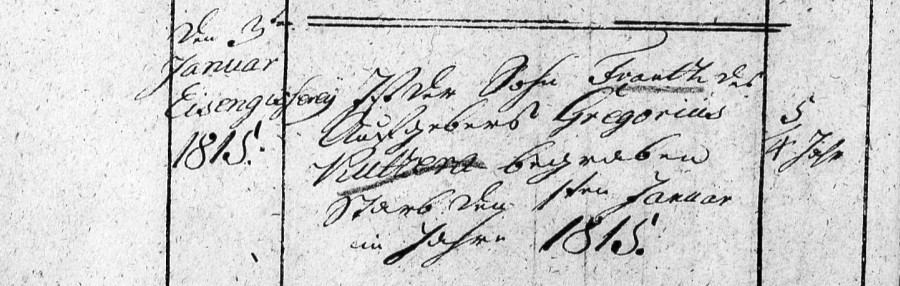 den 3ten
Januar
Eisengießerey
1815.
Ist der Sohn Frantz des
Aufgebers Gregorius
Kutzera begraben
Starb den 1ten Januar
im Jahre 1815.
5/4 Jahr